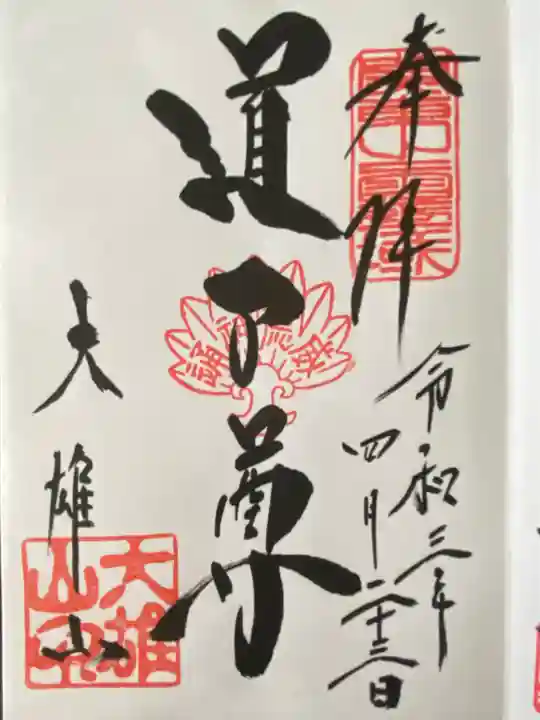 奉拝
令和三年
四月二十三日
道了尊
大雄山
大雄山印